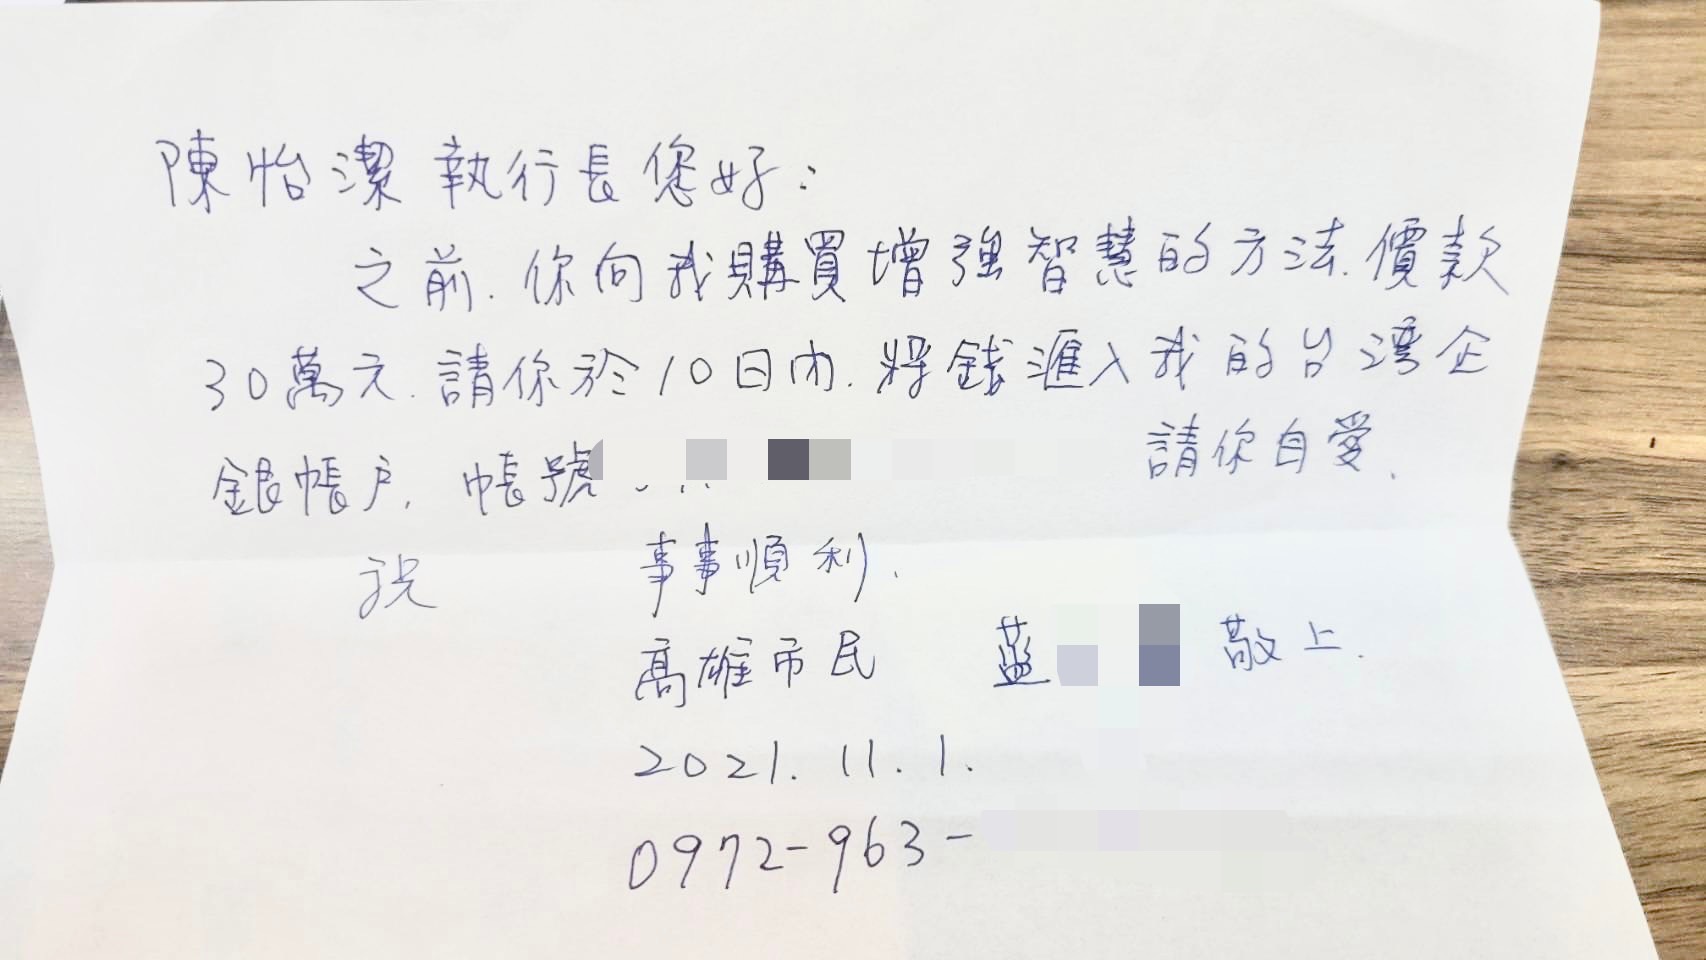 陳怡潔執行長您好：
之前.你向我購買增強智慧的方法.價款
30萬元.請你於10日內.將錢滙入我的台灣企
銀帳戶.帳號 請你自愛.
祝 事事順利.
高雄市民 藍 敬上.
2021.11.1.
0972-963-